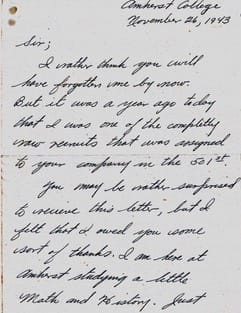 Amherst College
November 26, 1943
Sir;
I rather think you will
have forgotten me by now.
But it was a year ago today
that I was one of the completly
new recruits that was assigned
to your company in the 501st.
You may be rather surprised
to recieve this letter, but I
felt that I owed you some
sort of thanks. I am here at
Amherst studying a little
Math and History. Just